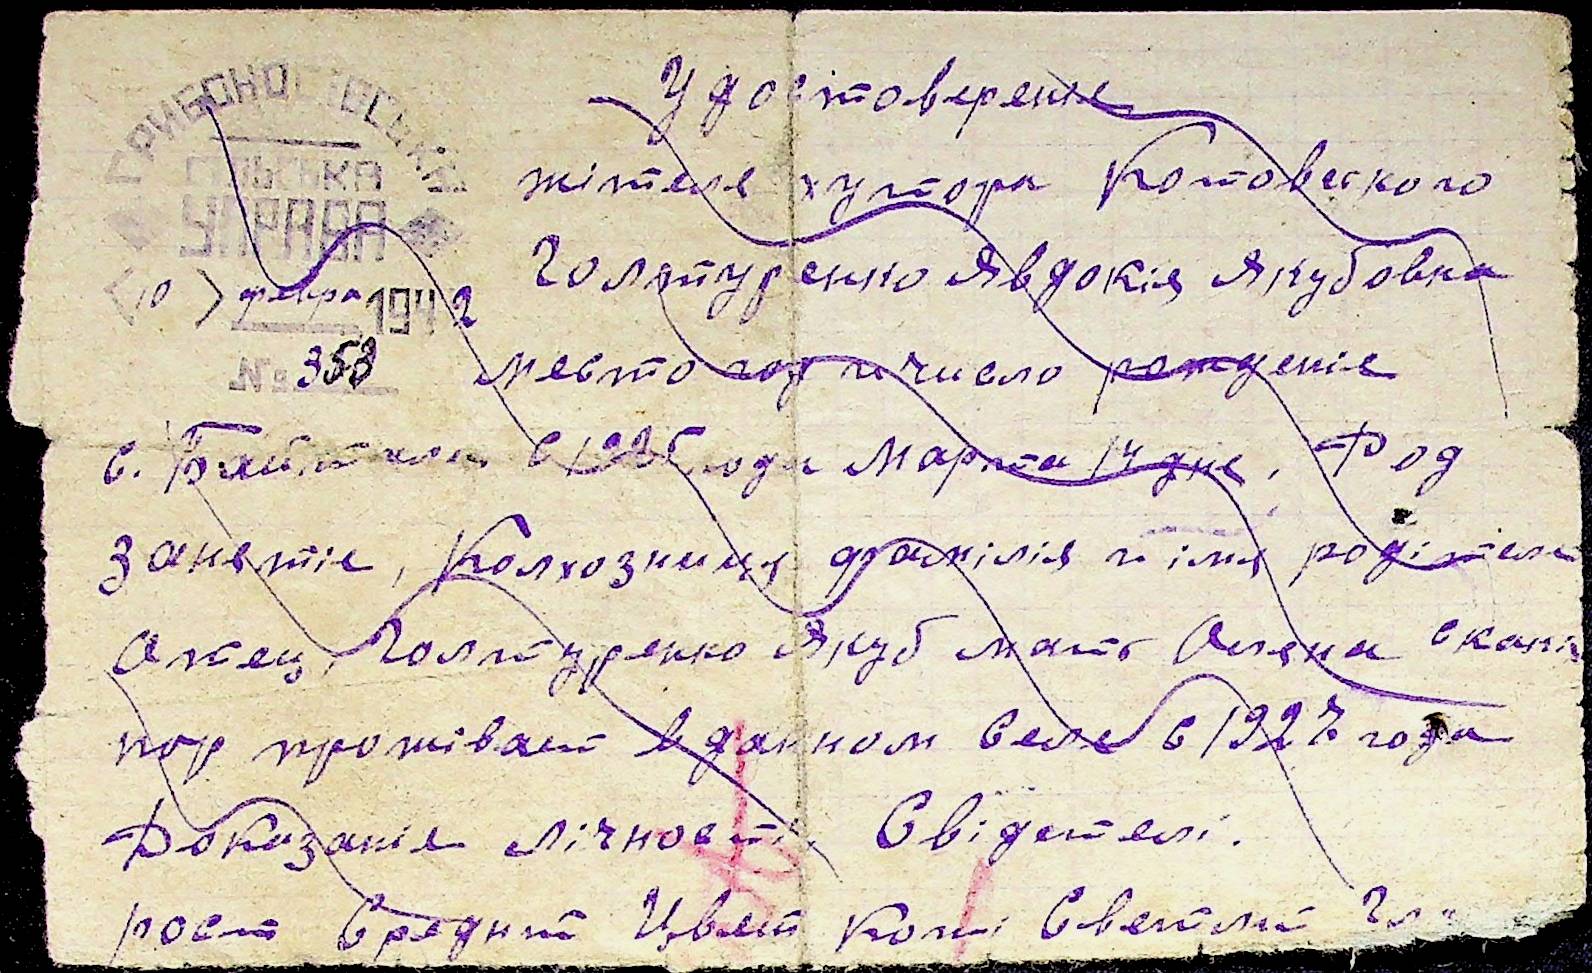 ГРИБОНОСІВСЬКА
СІЛЬСЬКА
УПРАВА
10 февра 1942
№ 353
Удостоверение
жітеля хутора Котовского
Голтуренко Явдокія Якубовна
место год и число рождение
с. в 1925 года Марта 14 дня, Род
Занятие, Колхозница фамілія и імя родітеля
Отец, Голтуренко Якуб мать Олена с каких
пор проживает в данном селе с 1927 года
Доказаніе лічності, Свідетелі.
рост Средний Цвет кожі Светлий